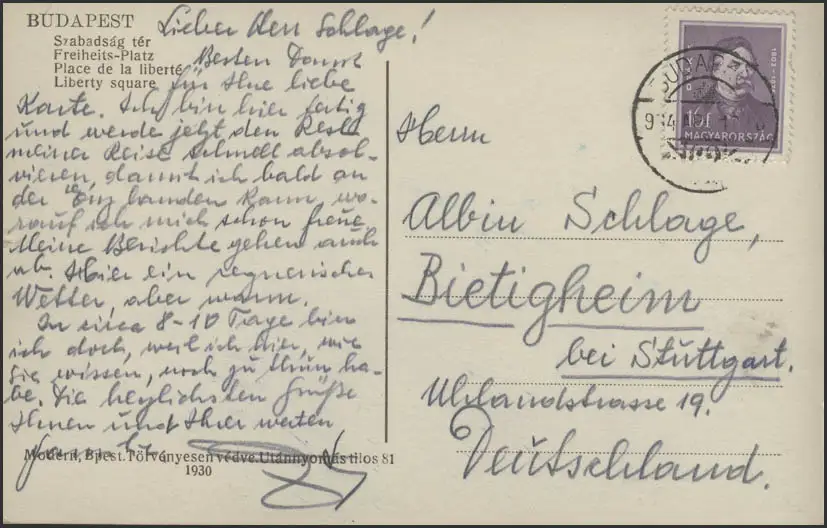 BUDAPEST
Szabadság tér
Freiheits-Platz
Place de la liberté
Liberty square
Lieber Herr Schlage!
Besten Dank
für Ihre liebe
Karte. Ich bin hier fertig
und werde jetzt den Rest
meiner Reise schnell absol-
vieren, damit ich bald an
der Enz landen kann, wo-
rauf ich mich schon freue.
Meine Berichte gehen auch
ab. Hier ein regnerisches
Wetter, aber warm.
In circa 8-10 Tage bin
ich doch, weil ich hier, wie
Sie wissen, noch zu thun ha-
be. Die herzlichsten Grüße
Ihnen und Ihrer werten
Modern, Bpest. Törvényesen védve. Utánnyomás tilos 81
1930
MAGYARORSZÁG
Herrn
Albin Schlage,
Bietigheim
bei Stuttgart.
Uhlandstrasse 19.
Deutschland.